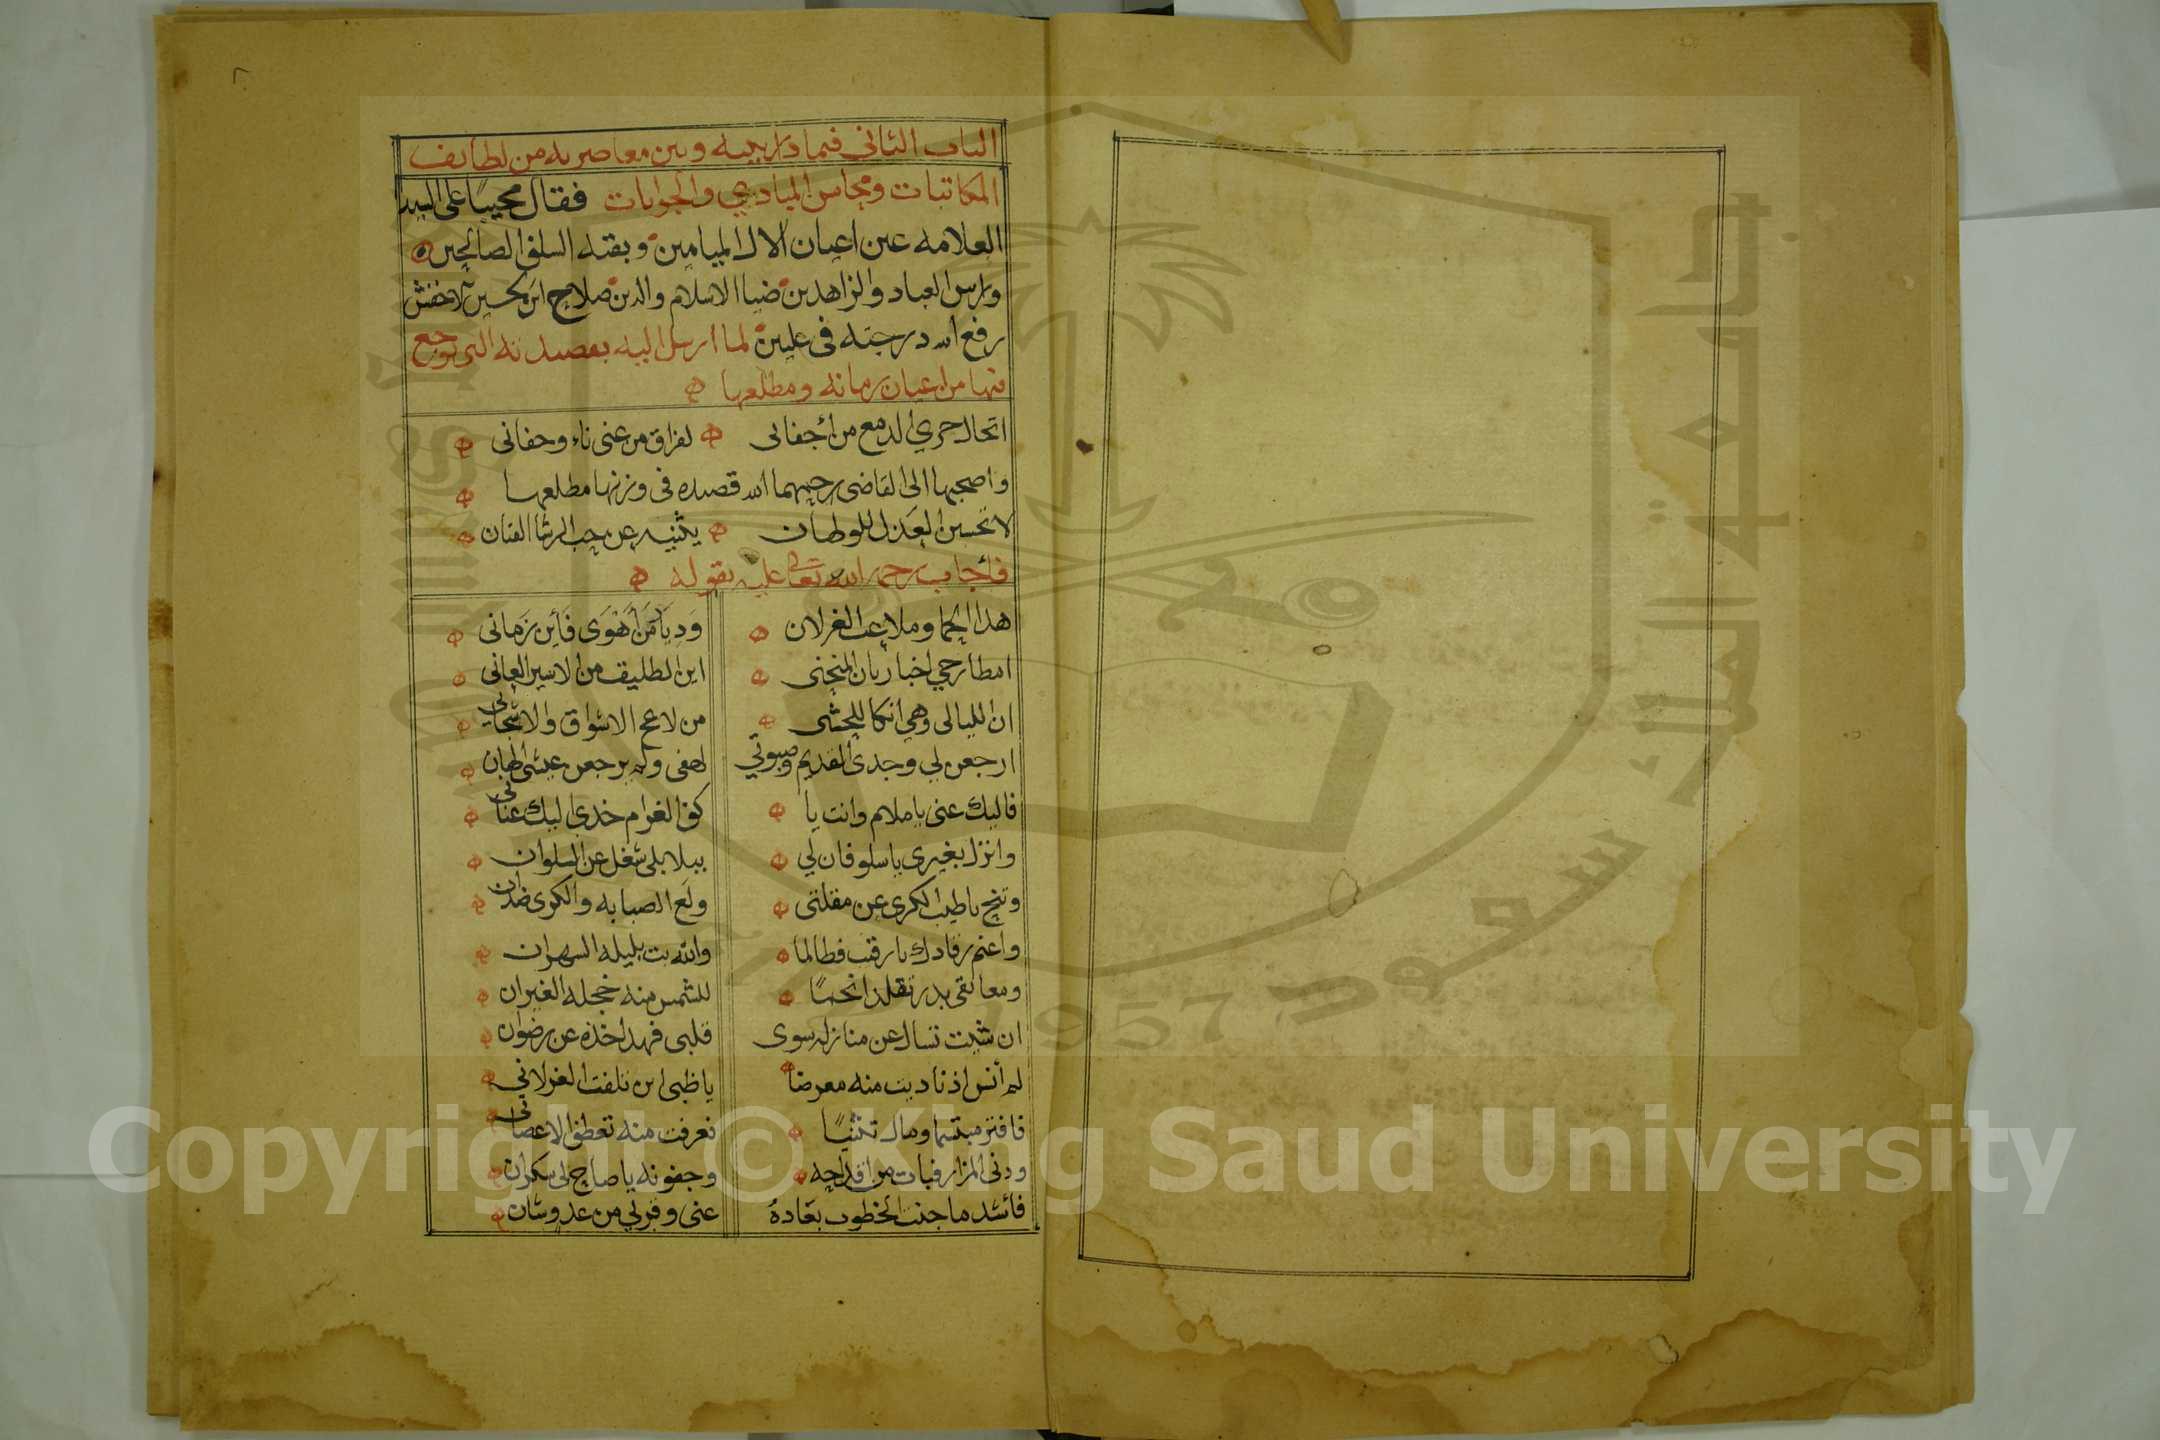 الباب الثاني فيما دار بينه وبين معاصريه من لطائف
المكاتبات ومحاسن المبادي والجوابات فقال مجيبًا على السيد
العلامه عين اعيان الال الميامين وبقيه السلف الصالحين
وراس العباد والزاهدين ضيا الاسلام والدين صلاح ابن الحسين الاخفش
رفع الله درجته في عليين لما ارسل اليه بقصيدته التي توجع
فيها من اعيان زمانه ومطلعها
اتخال جري الدمع من أجفاني لفراق من عني ناء وجفاني
واصحبها الى القاضي رحمهما الله قصيده في وزنها مطلعها
لا تحسبن العذل للولهان يثنيه عن حب الرشا الفتان
فأجاب رحمه الله تعالى عليه بقوله
هذا الحما وملاعب الغزلان وَدِيَارُ مَنْ أَهْوَى فَأَين زَماني
امطارحي اخبار بان المنحنى اين الطليق من الاسير العاني
ان الليالي وهي انكا للحشى من لاعج الاشواق والاشجاني
ارجعن لي وجدي القديم وصبوتي لهفي ولم يرجعن عيشي الهاني
فاليك عني يا ملام وانت يا كف الغرام خذي اليك عناني
وانزل بغيري يا سلو فان لي ببلابلي شغل عن السلوان
وتنح يا طيب الكرى عن مقلتي ولع الصبابه والكرى ضدان
واغنم رقادك يا رقيب فطالما والله بت بليله السهران
ومعانقي بدر تقلد انجمًا للشمس منه خجله الغيران
ان شيت تسال عن منازله سوى قلبي فهذا خده عن رضوان
لم أنس اذ ناديت منه معرضا يا ظبي اين تلفت الغزلاني
فافتر مبتسما ومال تثنيًا فعرفت منه تعطف الاغصاني
ودنى المزار فبات من اقداحه وجفونه يا صاح لي سكران
فأشد ما جنت الخطوب بعاده عني وقربي من عدو شان
جامعة الملك سعود
1957
Copyright © King Saud University